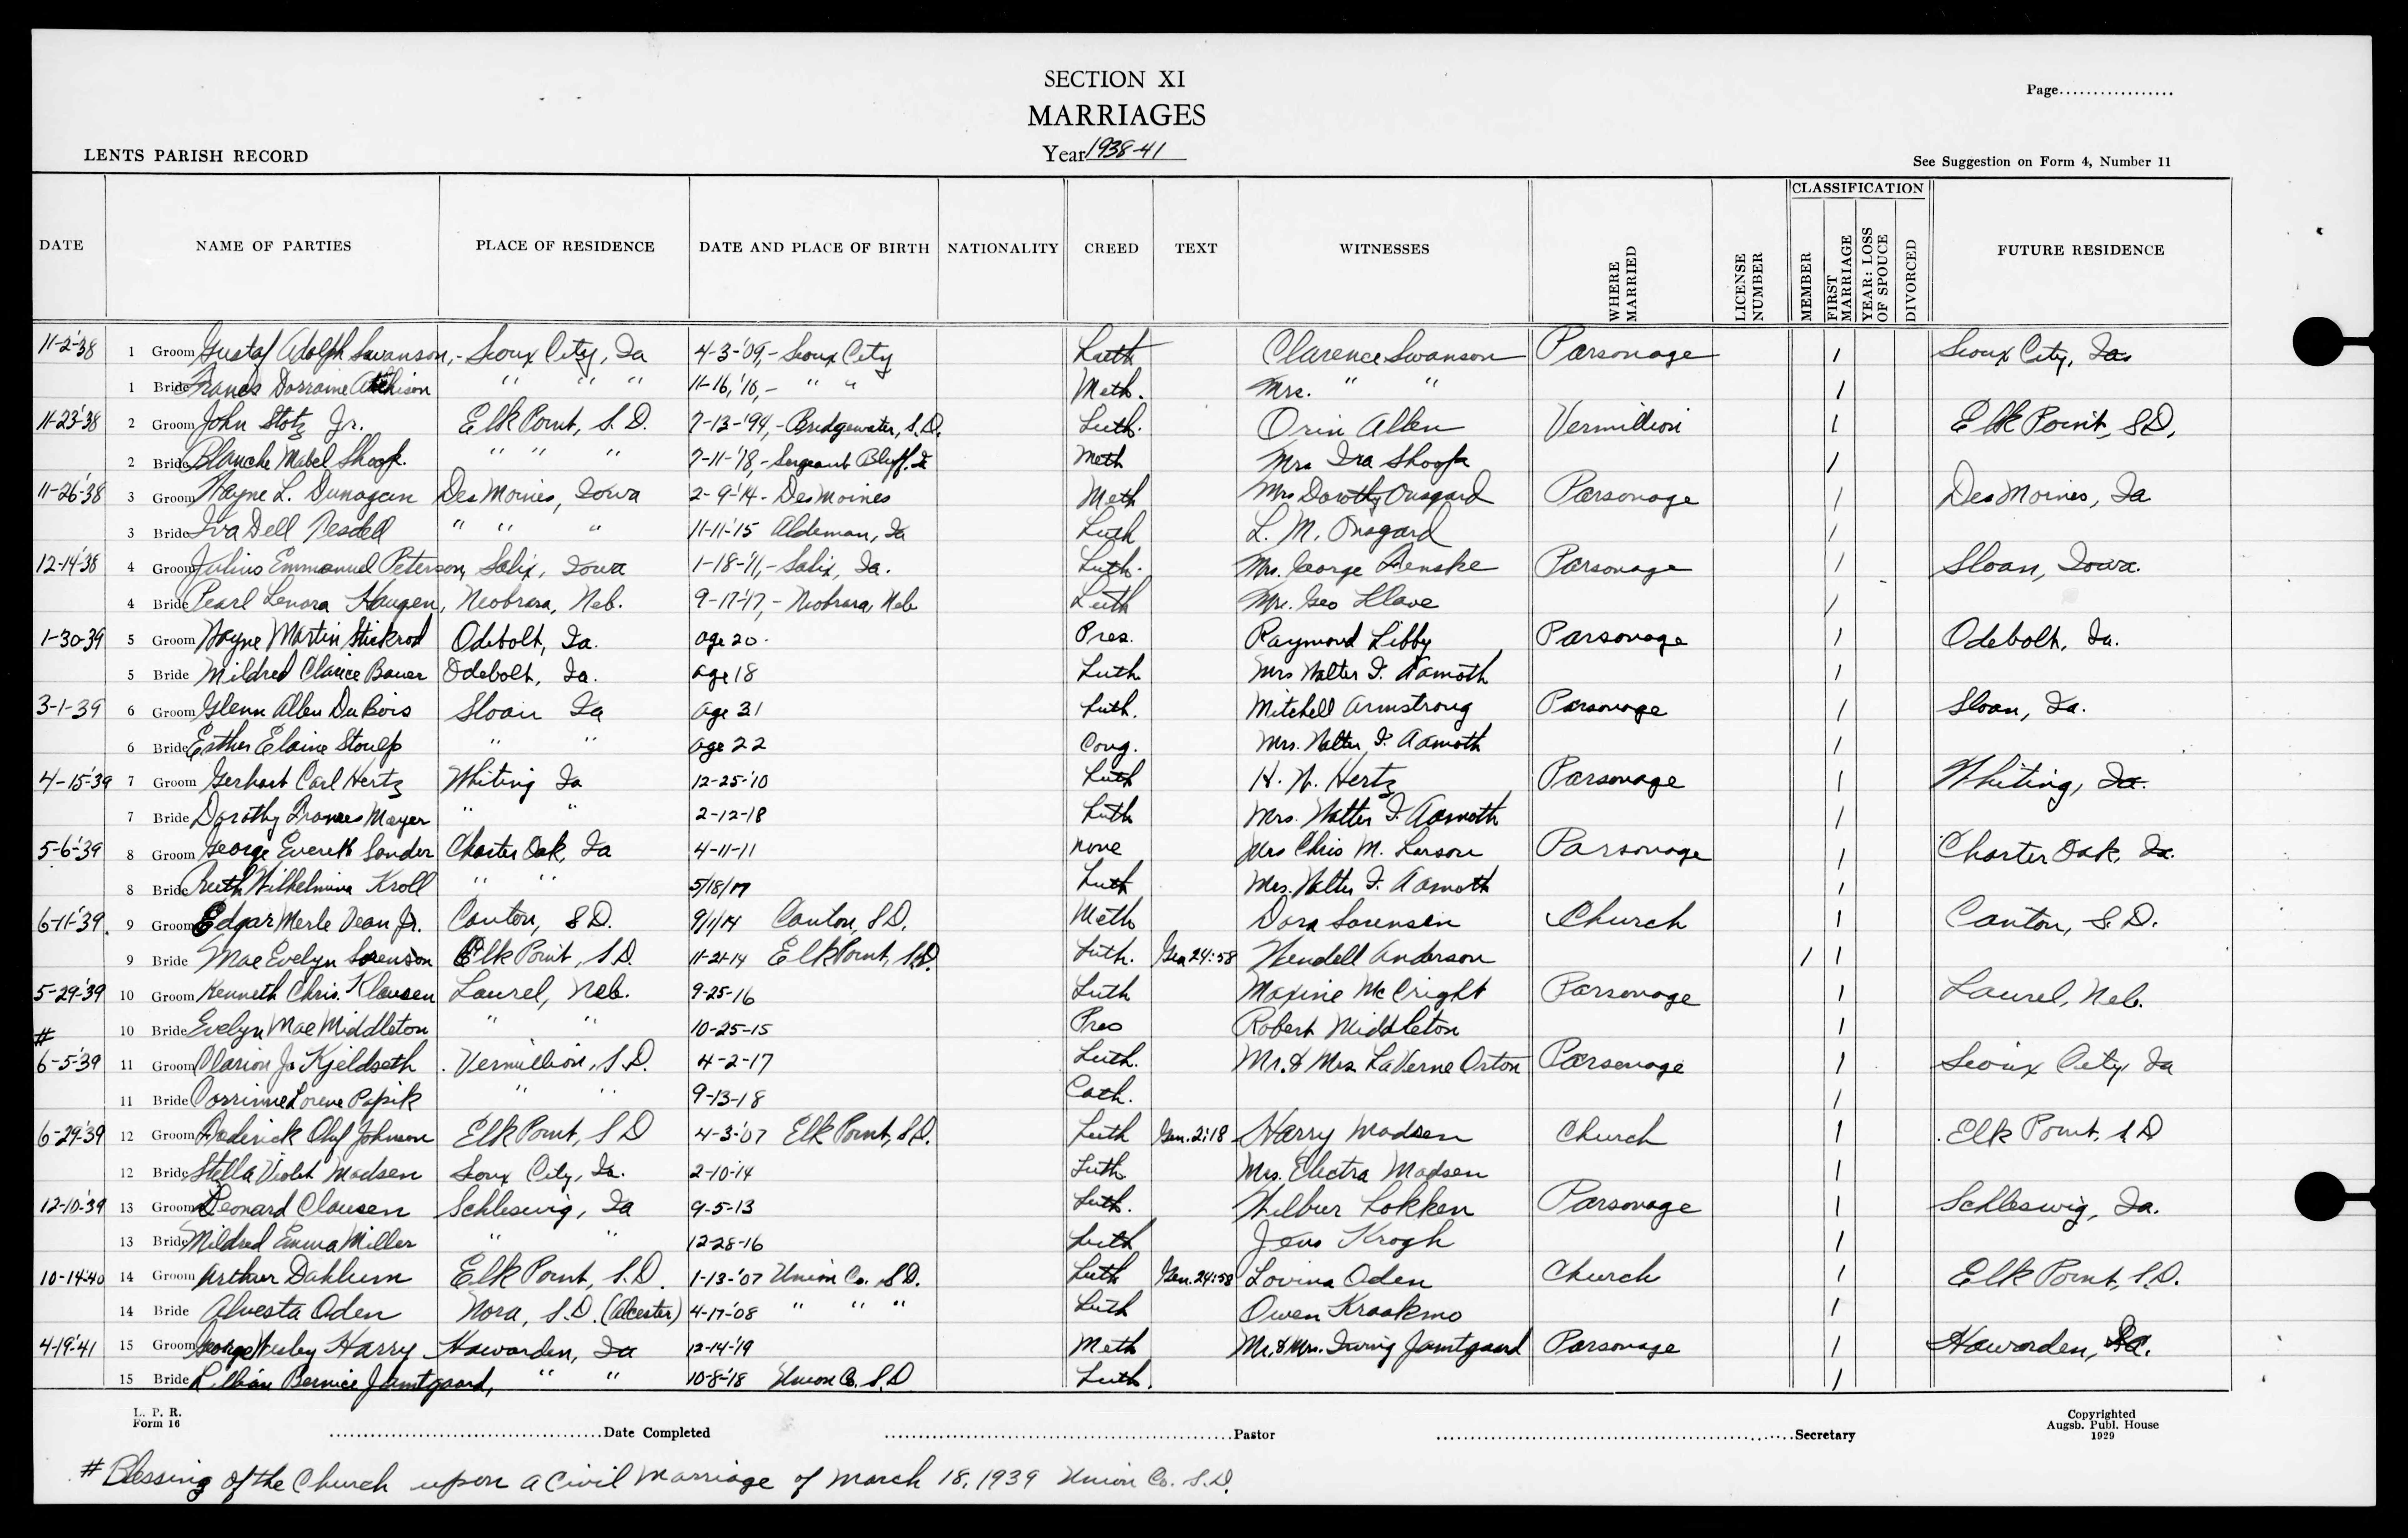 SECTION XI
MARRIAGES
Page
LENTS PARISH RECORD
Year 1938-41
See Suggestion on Form 4, Number 11
DATE NAME OF PARTIES PLACE OF RESIDENCE DATE AND PLACE OF BIRTH NATIONALITY CREED TEXT WITNESSES WHERE MARRIED LICENSE NUMBER CLASSIFICATION MEMBER FIRST MARRIAGE YEAR: LOSS OF SPOUCE DIVORCED FUTURE RESIDENCE
11-2-'38 1 Groom Gustaf Adolph Swanson, - Sioux City, Ia 4-3-'09, - Sioux City Luth Clarence Swanson Parsonage 1 Sioux City, Ia
1 Bride Dorraine " " " 11-16,'16, - " " Meth. Mrs. " " 1
11-23-'38 2 Groom John Stotz Jr. Elk Point, S.D. 7-13-'94, - Bridgewater, S.D. Luth. Orin Allen Vermillion 1 Elk Point, S.D.
2 Bride Blanche Mabel Shook " " " 7-11-'18, - Sergeant Bluff, Ia Meth Mrs Ira Shook 1
11-26-'38 3 Groom Wayne L. Dunagan Des Moines, Iowa 2-9-'14 - Des Moines Meth Mrs Dorothy Onsgard Parsonage 1 Des Moines, Ia
3 Bride Iva Dell Tesdell " " " 11-11-'15 Aldeman, Ia Luth L. M. Onsgard 1
12-14-'38 4 Groom Julius Emmanuel Peterson, Salix, Iowa 1-18-'11, - Salix, Ia. Luth. Mrs. George Parsonage 1 Sloan, Iowa.
4 Bride Pearl Lenora Haugen, Niobrara, Neb. 9-17-'17, - Niobrara, Neb Luth Mrs. Geo 1
1-30-39 5 Groom Wayne Martin Stickrod Odebolt, Ia. age 20. Pres. Raymond Libby Parsonage 1 Odebolt, Ia.
5 Bride Mildred Clarice Bauer Odebolt, Ia. age 18 Luth Mrs Walter I. Aamoth 1
3-1-39 6 Groom Glenn Allen DuBois Sloan Ia age 31 Luth. Mitchell Armstrong Parsonage 1 Sloan, Ia.
6 Bride Esther Elaine " " age 22 Cong. Mrs. Walter I. Aamoth 1
4-15-'39 7 Groom Gerhart Carl Hertz Whiting Ia 12-25-'10 Luth H. W. Hertz Parsonage 1 Whiting, Ia.
7 Bride Dorothy Frances Mayer " " 2-12-18 Luth Mrs. Walter I. Aamoth 1
5-6-'39 8 Groom George Everett Sander Charter Oak, Ia 4-11-11 none Mrs Chris M. Larson Parsonage 1 Charter Oak, Ia.
8 Bride Ruth Wilhelmina Kroll " " 5/18/17 Luth Mrs. Walter I. Aamoth 1
6-11-'39. 9 Groom Edgar Merle Dean Jr. Canton, S.D. 9/1/14 Canton, S.D. Meth Dora Sorensen Church 1 Canton, S.D.
9 Bride Mae Evelyn Sorenson Elk Point, S.D. 11-21-14 Elk Point, S.D. Luth. Gen 24:58 Wendell Anderson 1 1
5-29-'39 10 Groom Kenneth Chris. Klausen Laurel, Neb. 9-25-16 Luth Maxine McCright Parsonage 1 Laurel, Neb.
# 10 Bride Evelyn Mae Middleton " " 10-25-15 Pres Robert Middleton 1
6-5-'39 11 Groom Clarion Jr. Kjeldseth Vermillion, S.D. 4-2-17 Luth. Mr. & Mrs. LaVerne Orton Parsonage 1 Sioux City, Ia
11 Bride Corrinne Lorene Papik " " 9-13-18 Cath. 1
6-29-'39 12 Groom Roderick Oluf Johnson Elk Point, S.D 4-3-'07 Elk Point, S.D. Luth Gen. 2:18 Harry Madsen Church 1 Elk Point, S.D
12 Bride Stella Violet Madsen Sioux City, Ia. 2-10-'14 Luth. Mrs. Electra Madsen 1
12-10-'39 13 Groom Leonard Clausen Schleswig, Ia 9-5-13 Luth. Wilbur Lokken Parsonage 1 Schleswig, Ia.
13 Bride Mildred Emma Miller " " 12-28-16 Luth Jens Krogh 1
10-14-'40 14 Groom Arthur Dahlum Elk Point, S.D. 1-13-'07 Union Co. S.D. Luth Gen. 24:58 Lovina Oden Church 1 Elk Point, S.D.
14 Bride Alvesta Oden Nora, S.D. (Alcester) 4-17-'08 " " " Luth Owen Kraakmo 1
4-19-'41 15 Groom George Wesley Harry Hawarden, Ia 12-14-'19 Meth Mr. & Mrs. Irving Jamtgaard Parsonage 1 Hawarden, Ia.
15 Bride Lillian Bernice Jamtgaard, " " 10-8-'18 Union Co. S.D Luth. 1
L. P. R.
Form 16
Date Completed Pastor Secretary
Copyrighted
Augsb. Publ. House
1929
# Blessing of the Church upon a Civil Marriage of March 18, 1939 Union Co. S.D.